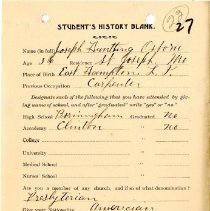 STUDENT'S HISTORY BLANK.
27
Name (in full) Joseph Bunting Osforn
Age 36 Residence St Joseph, Mo
Place of Birth East Hampton L. I.
Previous Occupation Carpenter
Designate such of the following that you have attended by giving
name of school, and after "graduated" write "yes" or "no."
High School Birmingham Graduated No
Academy Clinton " No
College "
University "
Medical School "
Nurses' School "
Are you a member of any church, and if so of what denomination?
Presbyterian
Give your Nationality American